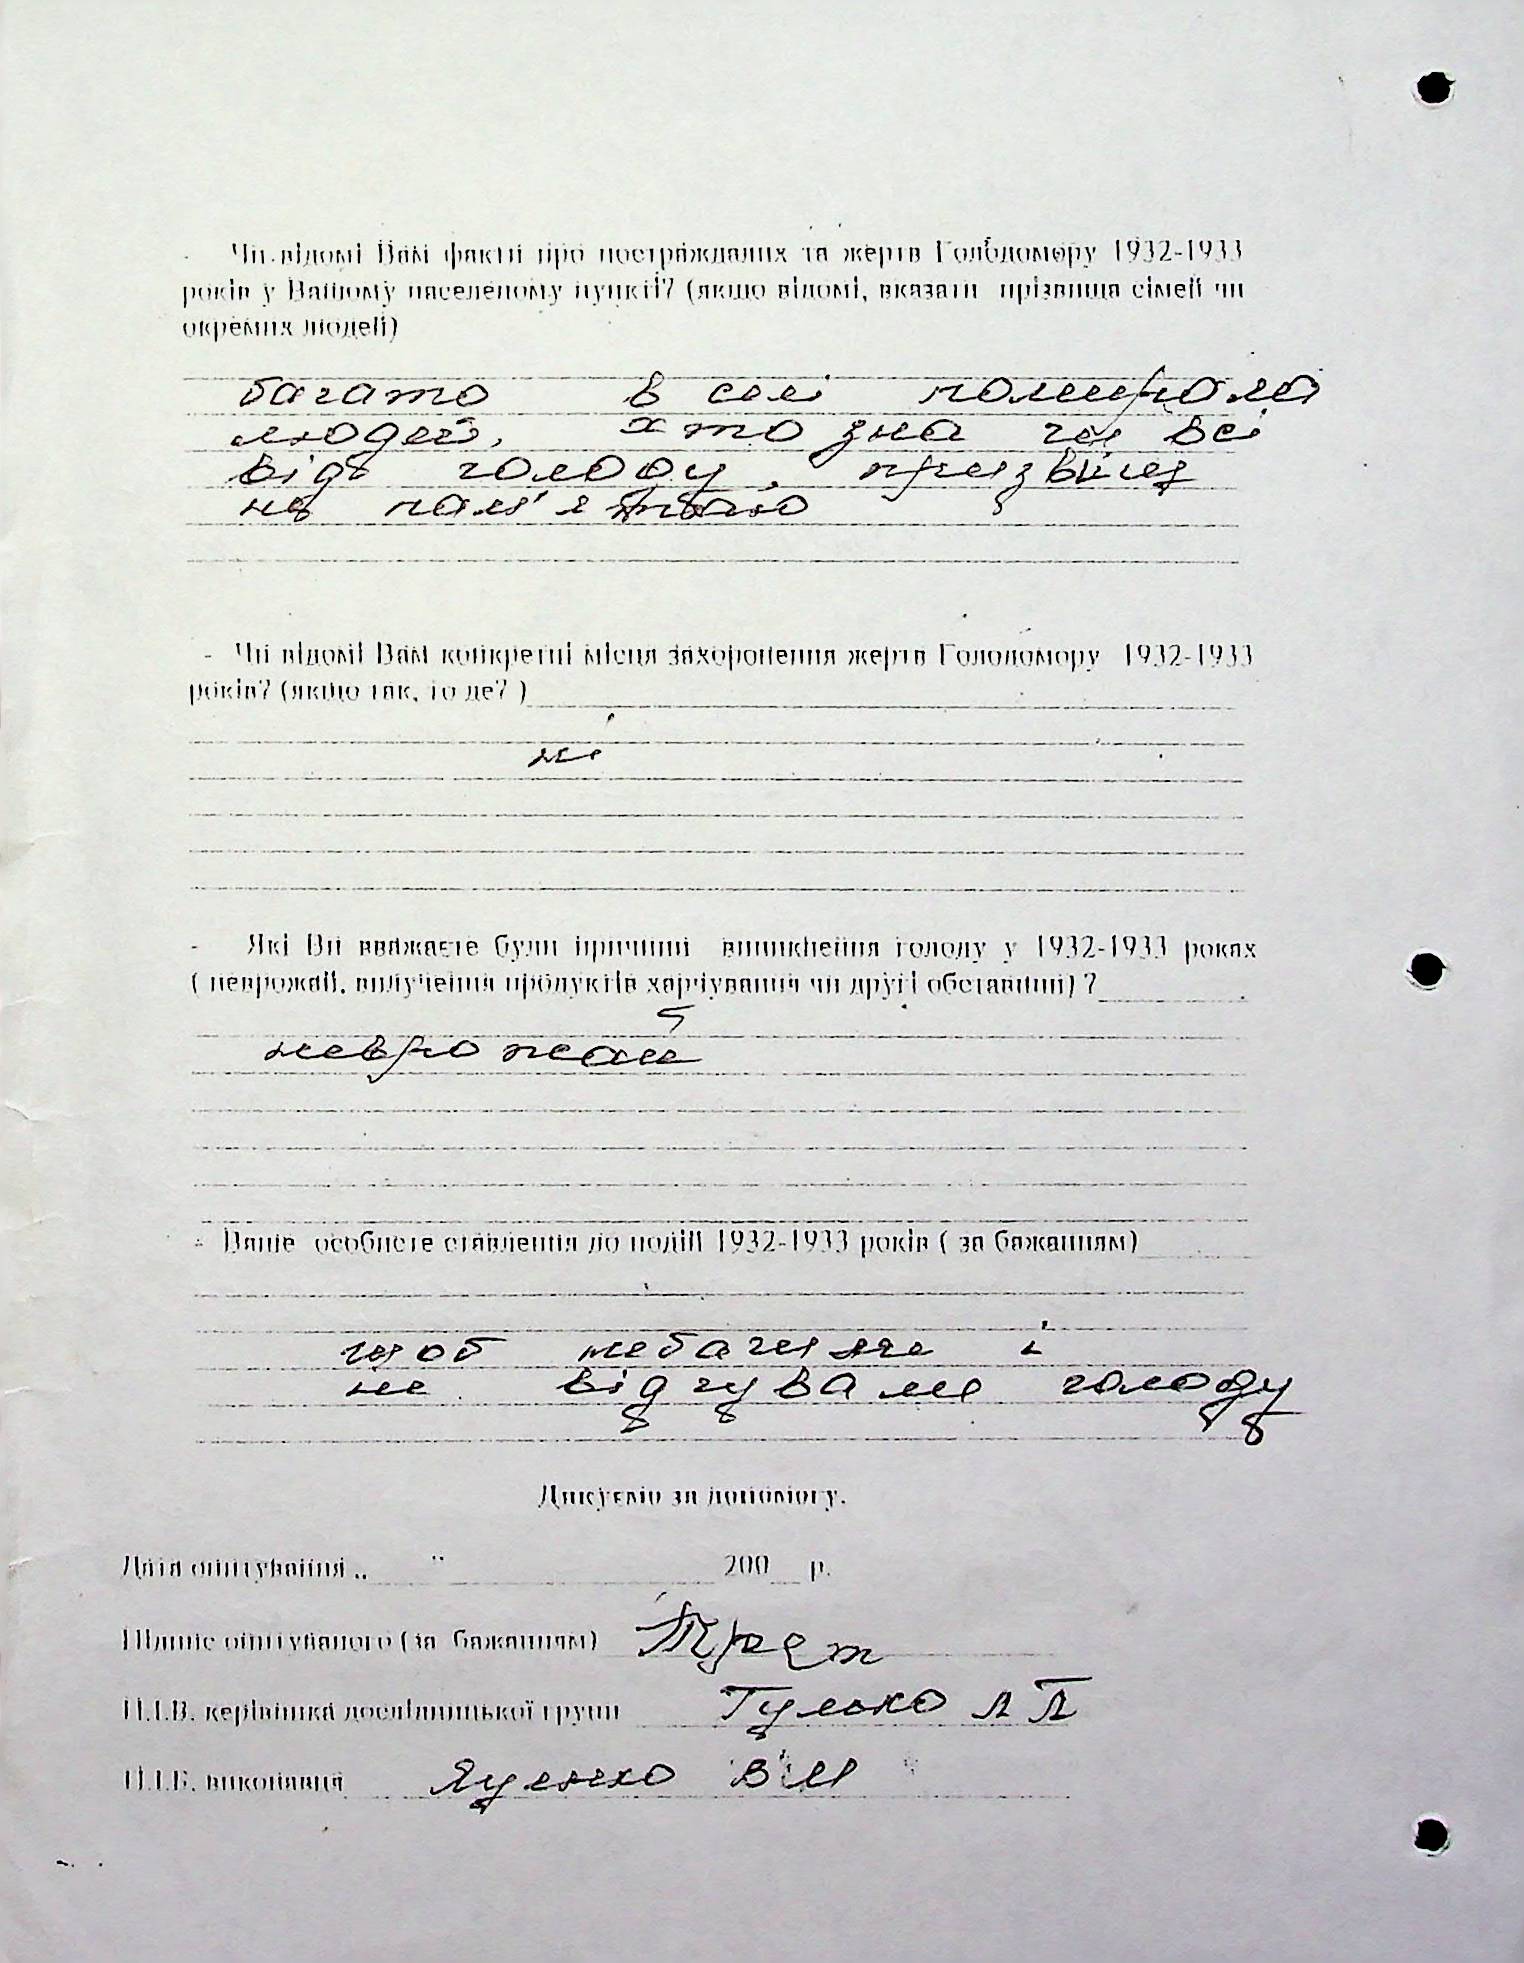 - Чи відомі Вам факти про постраждалих та жертв Голодомору 1932-1933
років у Вашому населеному пункті? (якщо відомі, вказати прізвища сімей чи
окремих людей)
багато в селі померло
людей, хто зна чи всі
від голоду, прізвищ
не пам'ятаю
- Чи відомі Вам конкретні місця захоронення жертв Голодомору 1932-1933
років? (якщо так, то де? )
ні
- Які Ви вважаєте були причини виникнення голоду у 1932-1933 роках
( неврожай, вилучення продуктів харчування чи другі обставини) ?
неврожай
- Ваше особисте ставлення до подій 1932-1933 років ( за бажанням)
щоб небачили і
не відчували голоду
Дякуємо за допомогу.
Дата опитування „ " 200 р.
Підпис опитуваного ( за бажанням)
П.І.Б. керівника дослідницької групи Гулько Л П
П.І.Б. виконавця Яценко В М